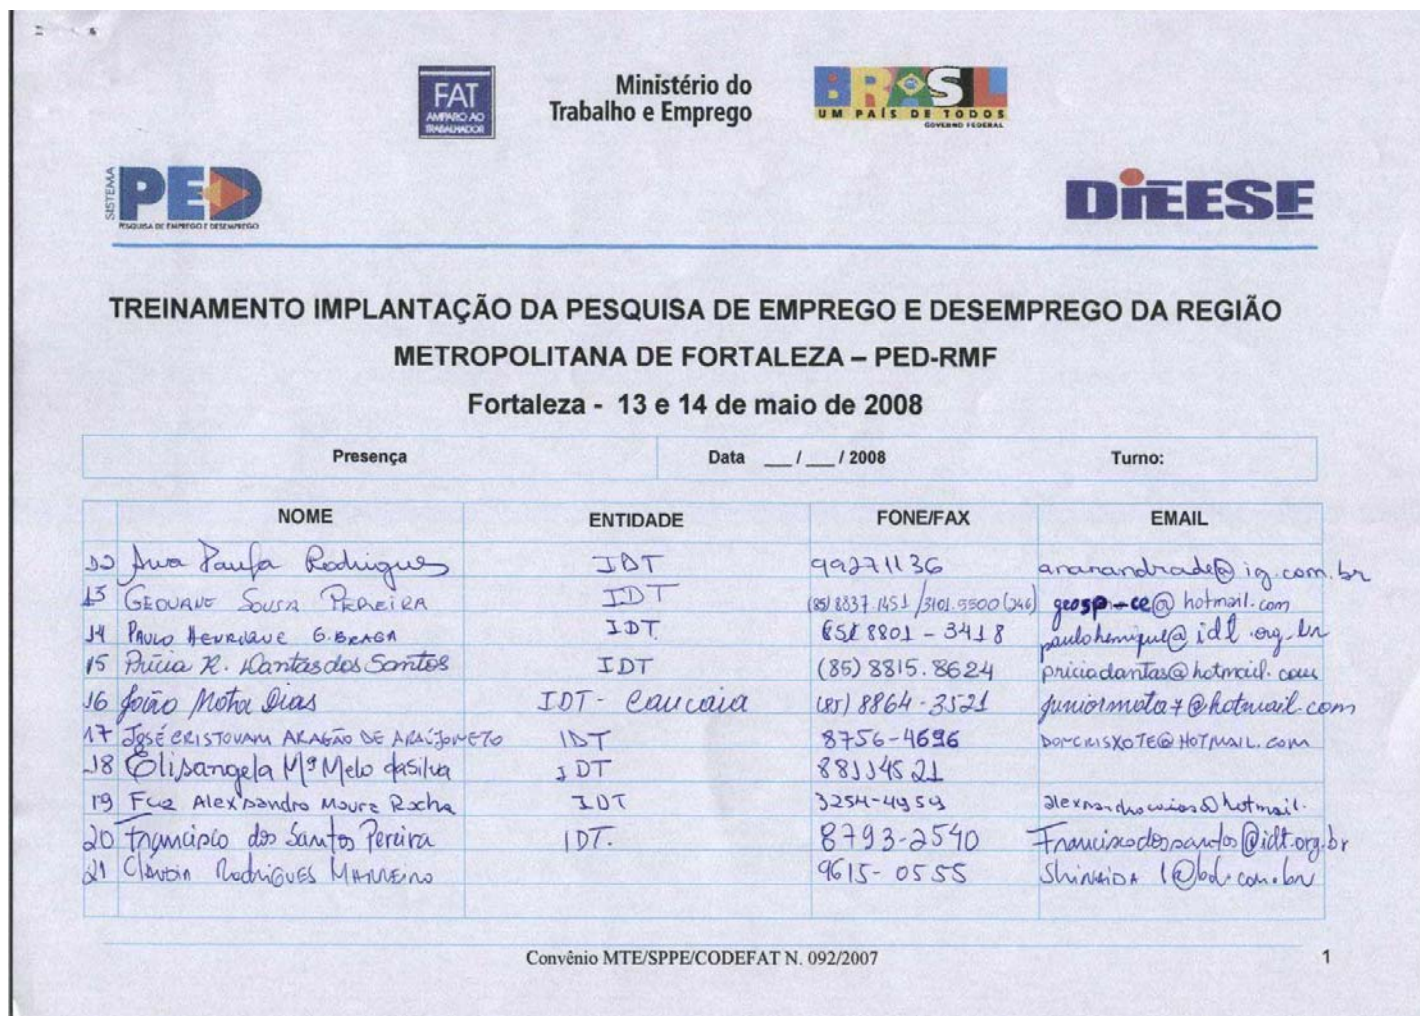 FAT
AMPARO AO
TRABALHADOR
Ministério do
Trabalho e Emprego
BRASIL
UM PAÍS DE TODOS
GOVERNO FEDERAL
SISTEMA
PED
PESQUISA DE EMPREGO E DESEMPREGO
DIEESE
TREINAMENTO IMPLANTAÇÃO DA PESQUISA DE EMPREGO E DESEMPREGO DA REGIÃO
METROPOLITANA DE FORTALEZA – PED-RMF
Fortaleza - 13 e 14 de maio de 2008
Presença Data __/__/ 2008 Turno:
NOME ENTIDADE FONE/FAX EMAIL
Ana Paula Rodrigues IDT 99271136 ananandrade@ig.com.br
13 GEOVANE SOUSA PEREIRA IDT (85) 8837.1451 /3101.5500 (246) geosp-ce@hotmail.com
14 PAULO HENRIQUE G. BRAGA IDT 8801-3418 paulohenrique@idt.org.br
15 Prícia R. Dantas dos Santos IDT (85) 8815.8624 priciadantas@hotmail.com
16 João Mota Dias IDT - Caucaia (85) 8864-3521 juniormota7@hotmail.com
17 JOSÉ CRISTOVAM ARAGÃO DE ARAÚJO NETO IDT 8756-4696 DOMCRISXOTE@HOTMAIL.COM
18 Elisangela Mª Melo da Silva IDT 88114521
19 Fco Alexsandro Moura Rocha IDT 3254-4959
20 Francisco dos Santos Pereira IDT. 8793-2540 Franciscodossantos@idt.org.br
21 RODRIGUES 9615-0555
Convênio MTE/SPPE/CODEFAT N. 092/2007 1